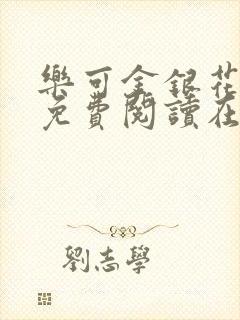 樂可金銀花
免費閱讀在
劉志學